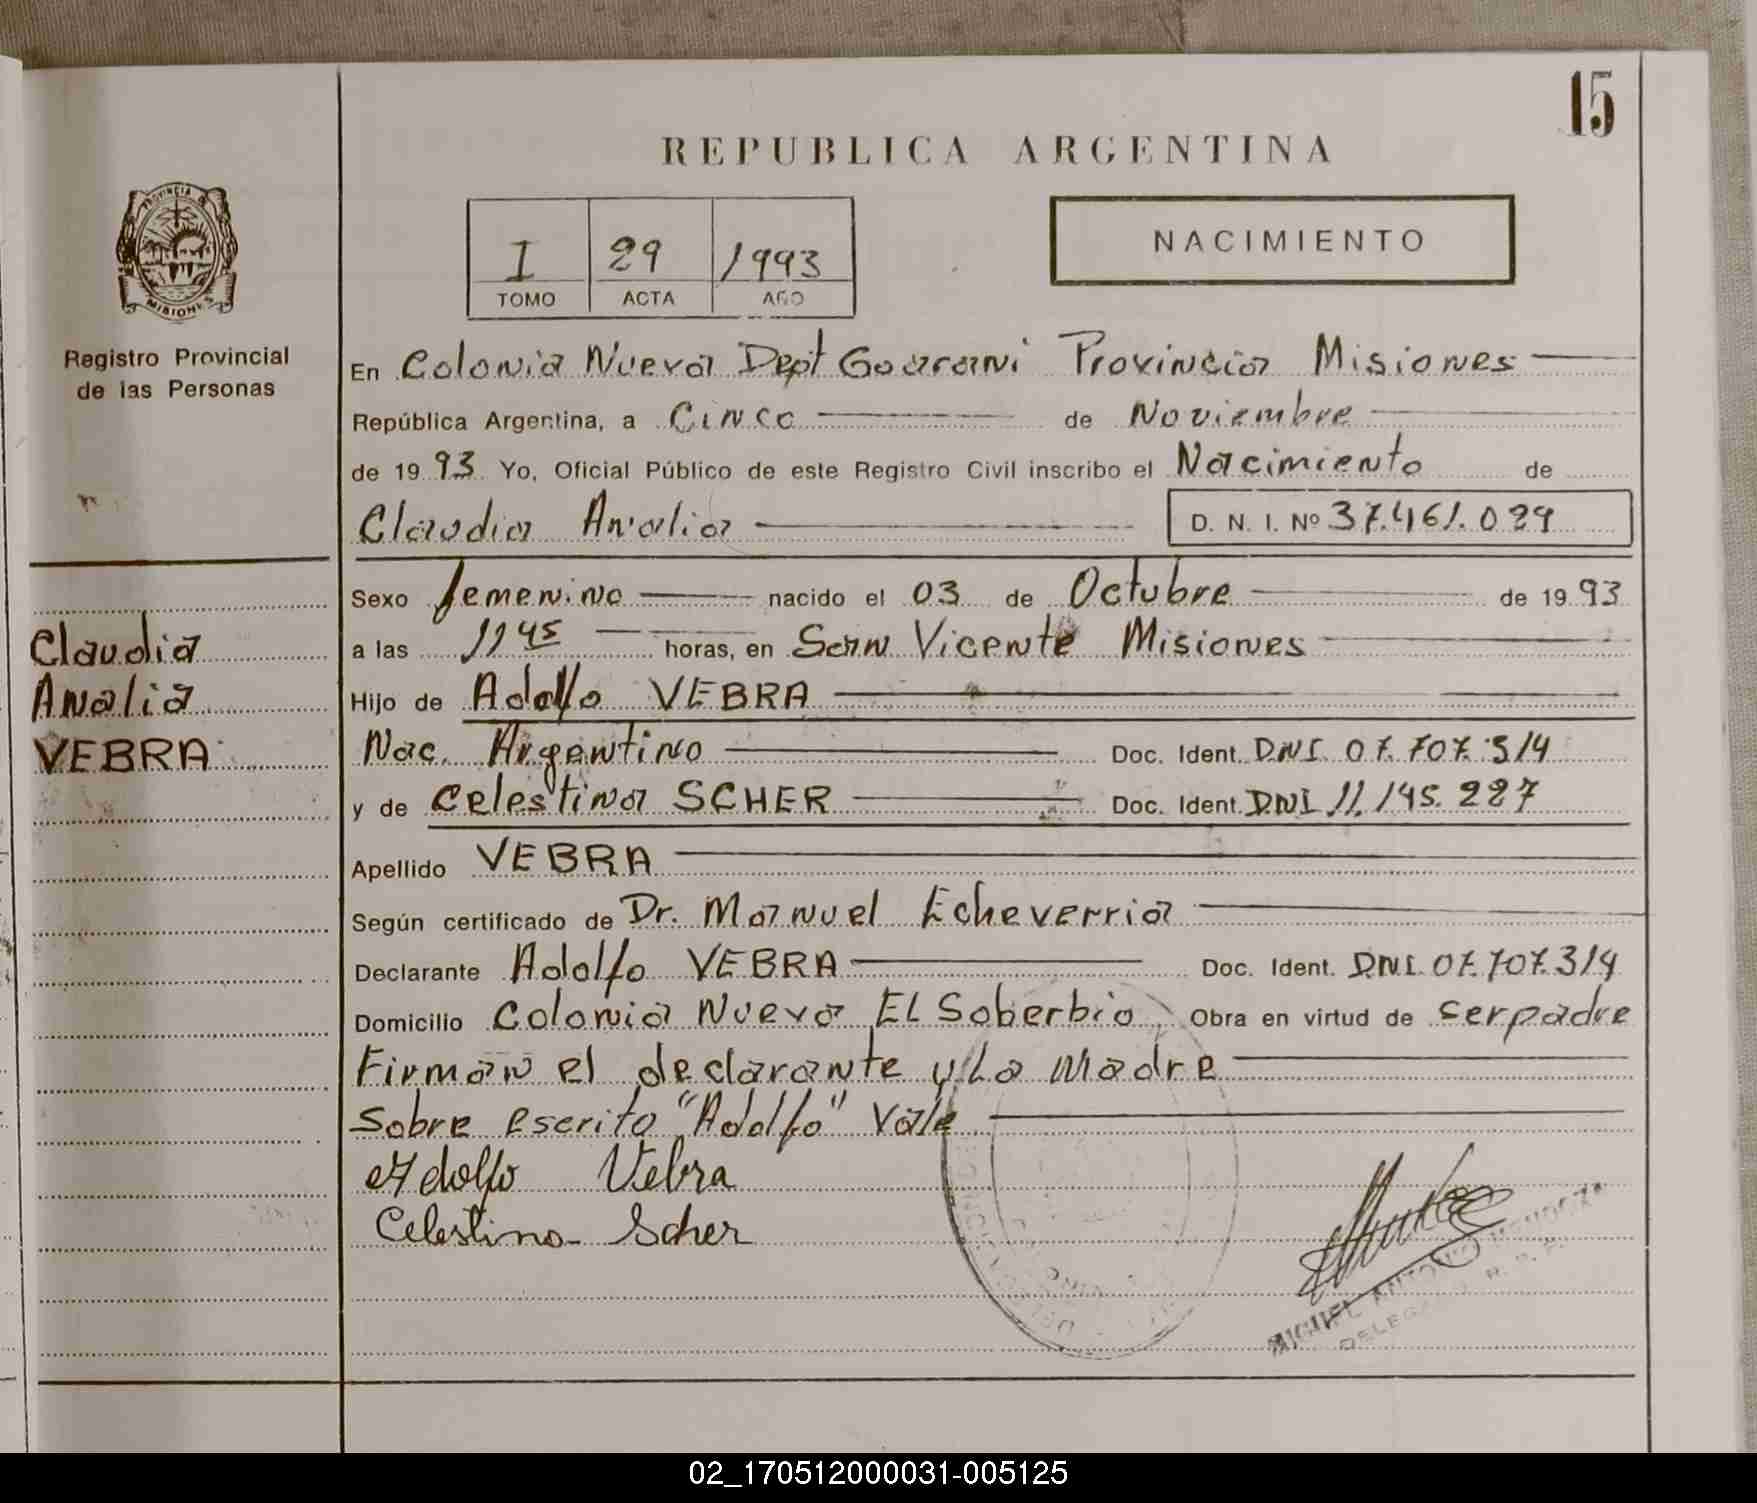 15
REPUBLICA ARGENTINA
PROVINCIA DE
MISIONES
I 29 1993
TOMO ACTA AÑO
NACIMIENTO
Registro Provincial
de las Personas
En Colonia Nueva Dept Guarani Provincia Misiones
República Argentina, a Cinco de Noviembre
de 1993 Yo, Oficial Público de este Registro Civil inscribo el Nacimiento de
Claudia Analia D. N. I. Nº 37.461.029
Sexo femenino nacido el 03 de Octubre de 1993
a las 11 45 horas, en San Vicente Misiones
Hijo de Adolfo VEBRA
Nac. Argentino Doc. Ident. DNI. 07.707.314
y de Celestina SCHER Doc. Ident. DNI 11.145.227
Apellido VEBRA
Según certificado de Dr. Manuel Echeverria
Declarante Adolfo VEBRA Doc. Ident. DNI. 07.707.314
Domicilio Colonia Nueva EL Soberbio, Obra en virtud de ser padre
Firman el declarante y La Madre
Sobre escrito "Adolfo" Vale
Adolfo Vebra
Celestina Scher
MIGUEL ANTONIO MENDOZA
Claudia
Analia
VEBRA
02_170512000031-005125